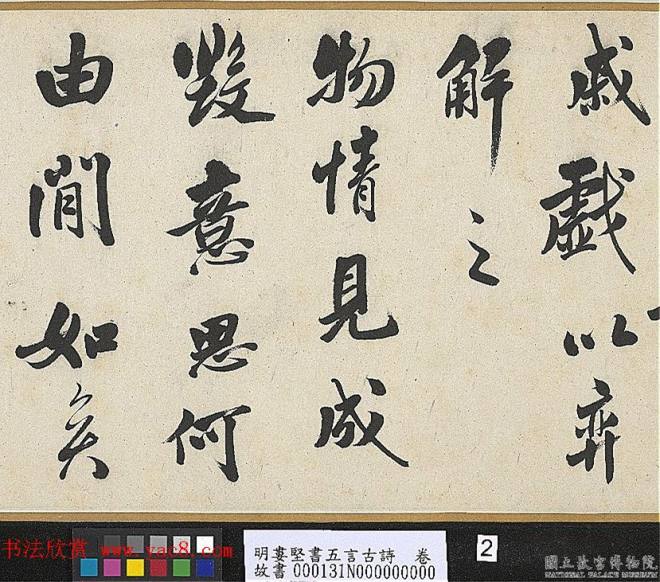 戚戲以弈
解之
物情見成
毀意思何
由閒如矣
书法欣赏
www.yac8.com
明婁堅書五言古詩 卷
故書000131N000000000
2
國立故宮博物院
NATIONAL PALACE MUSEUM